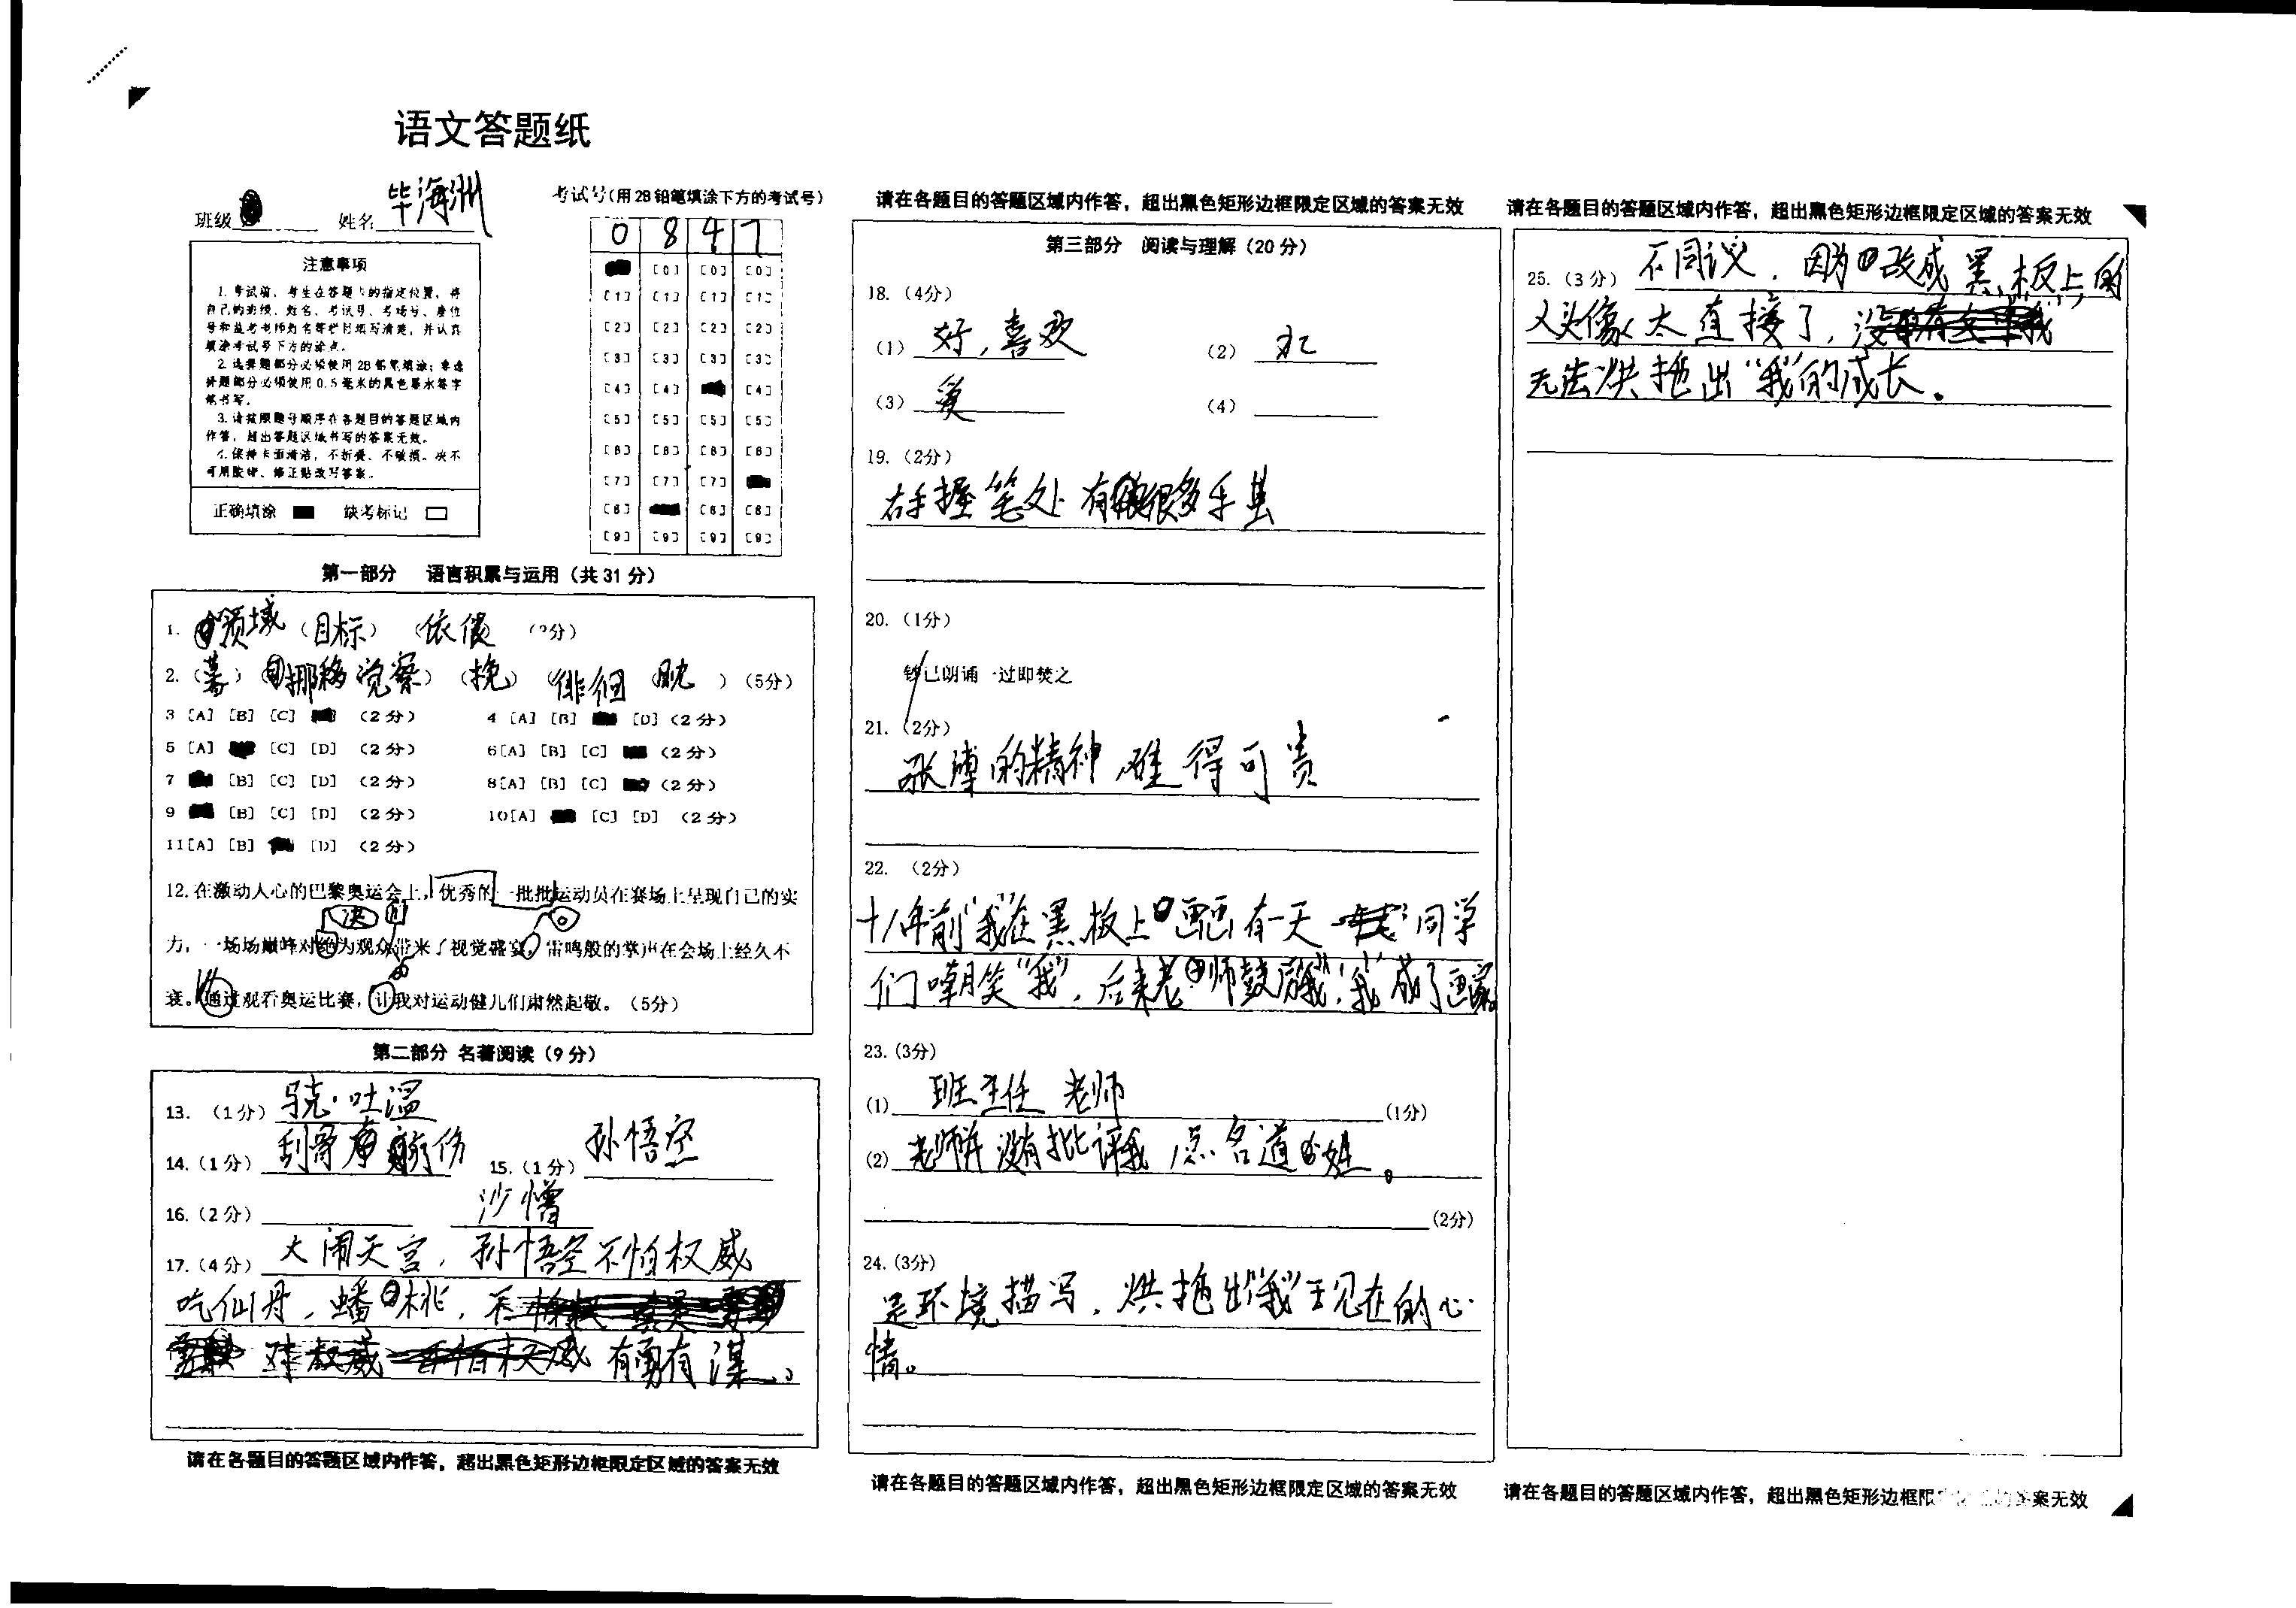 语文答题纸
班级 姓名 毕海洲
考试号(用2B铅笔填涂下方的考试号)
0 8 4 7
注意事项
1.考试前，考生在答题卡的指定位置，将
自己的班级、姓名、考试号、考场号、座位
号和监考老师姓名等栏目填写清楚，并认真
填涂考试号下方的涂点。
2.选择题部分必须使用2B铅笔填涂；非选
择题部分必须使用0.5毫米的黑色墨水签字
笔书写。
3.请按照题号顺序在各题目的答题区域内
作答，超出答题区域书写的答案无效。
4.保持卡面清洁，不折叠、不破损。决不
可用胶带、修正贴改写答案。
正确填涂 缺考标记
[0] [0] [0]
[1] [1] [1] [1]
[2] [2] [2] [2]
[3] [3] [3] [3]
[4] [4] [4]
[5] [5] [5] [5]
[6] [6] [6] [6]
[7] [7] [7]
[8] [8] [8]
[9] [9] [9] [9]
第一部分 语言积累与运用（共31分）
1. 领域（目标）（依偎 （3分）
2.（蓦）挪移 觉察）（挽） （徘徊 ）（5分）
3 [A] [B] [C] （2分） 4 [A] [B] [D]（2分）
5 [A] [C] [D] （2分） 6[A] [B] [C] （2分）
7 [B] [C] [D] （2分） 8[A] [B] [C] （2分）
9 [B] [C] [D] （2分） 10[A] [C] [D] （2分）
11[A] [B] [D] （2分）
12.在激动人心的巴黎奥运会上，优秀的一批批运动员在赛场上呈现自己的实
决 们
力，一场场巅峰对绝为观众带来了视觉盛宴，雷鸣般的掌声在会场上经久不
衰。通过观看奥运比赛，让我对运动健儿们肃然起敬。（5分）
第二部分 名著阅读（9分）
13. （1分）马克·吐温
14.（1分）刮骨疗伤 15.（1分）孙悟空
16.（2分） 沙憎
17.（4分）大闹天宫，孙悟空不怕权威
吃仙丹，蟠桃，不
有勇有谋。
请在各题目的答题区域内作答，超出黑色矩形边框限定区域的答案无效
请在各题目的答题区域内作答，超出黑色矩形边框限定区域的答案无效
第三部分 阅读与理解（20分）
18.（4分）
（1）好，喜欢 （2）
（3） （4）
19.（2分）
右手握笔处有很多手茧
20.（1分）
钞已朗诵一过即焚之
21.（2分）
张溥的精神难得可贵
22. （2分）
十八年前“我”在黑板上画画有一天 同学
们嘲笑“我”，后来老师鼓励“我”，“我”成了画家。
23.(3分)
(1) 班主任 老师 (1分)
(2) 老师并没有批评我，点名道姓。
(2分)
24.(3分)
是环境描写，烘拖出“我”现在的心
情。
请在各题目的答题区域内作答，超出黑色矩形边框限定区域的答案无效
请在各题目的答题区域内作答，超出黑色矩形边框限定区域的答案无效
25.（3分）不同议，因为改成黑板上的
人头像太直接了，
无法烘拖出“我”的成长。
请在各题目的答题区域内作答，超出黑色矩形边框限 答案无效